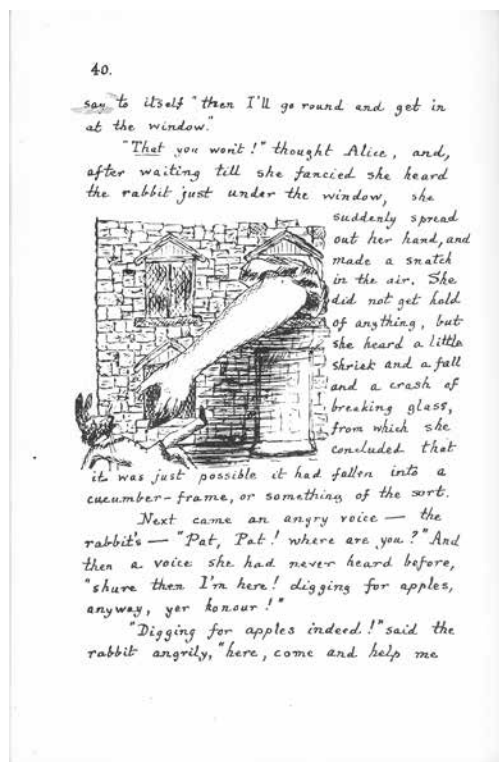 40.
say to itself "then I'll go round and get in
at the window."
"That you wont!" thought Alice, and,
after waiting till she fancied she heard
the rabbit just under the window, she
suddenly spread
out her hand, and
made a snatch
in the air. She
did not get hold
of anything, but
she heard a little
shriek and a fall
and a crash of
breaking glass,
from which she
concluded that
it was just possible it had fallen into a
cucumber-frame, or something of the sort.
Next came an angry voice — the
rabbit's — "Pat, Pat! where are you?" And
then a voice she had never heard before,
"shure then I'm here! digging for apples,
anyway, yer honour!"
"Digging for apples indeed!" said the
rabbit angrily, "here, come and help me